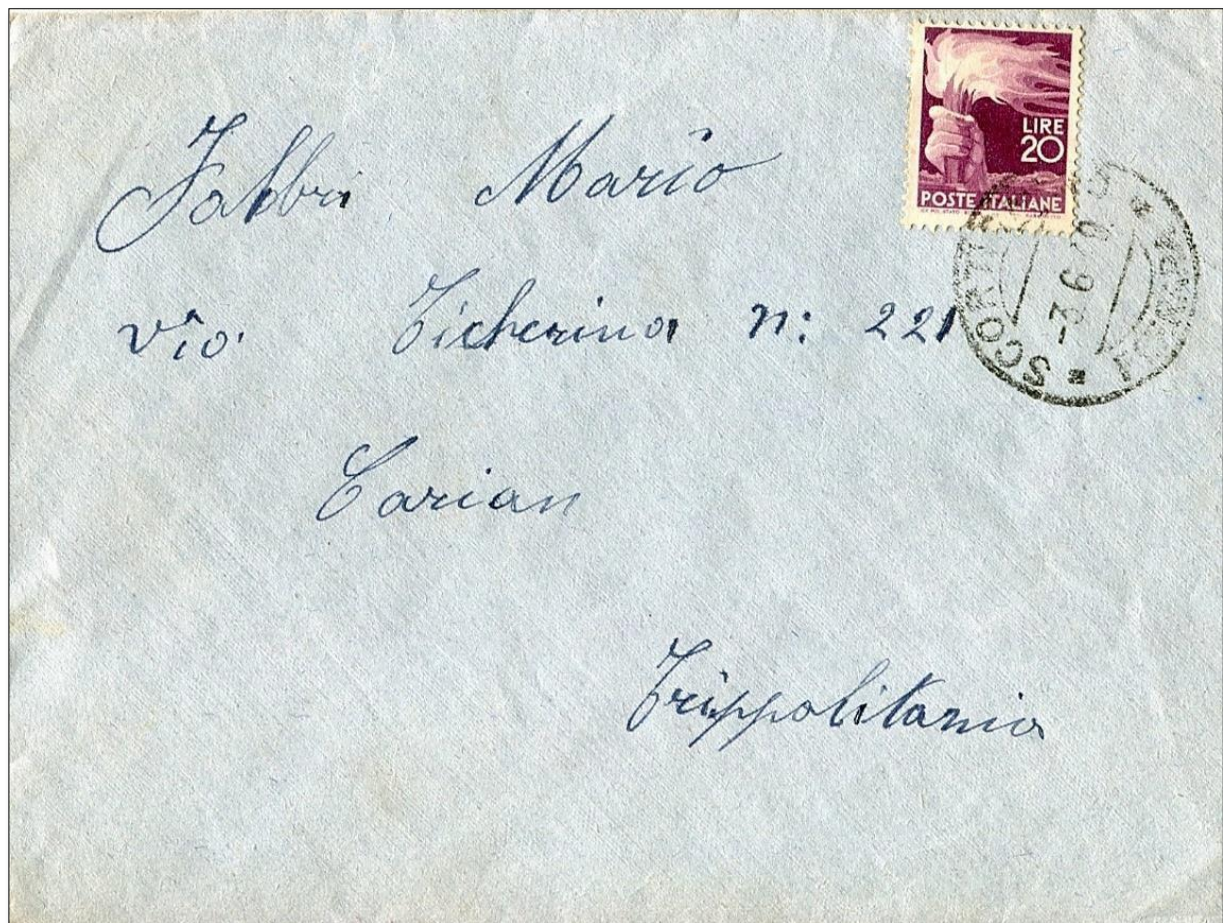 LIRE
20
POSTE ITALIANE
Fabbri Mario
Via Ticherina n: 221
Carian
Trippolitania
-3.6